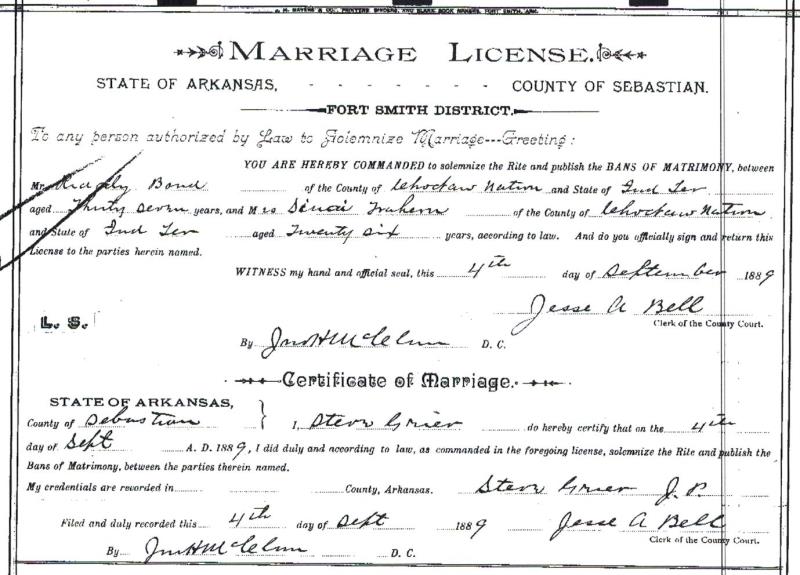 MARRIAGE LICENSE.
STATE OF ARKANSAS, - - - - - - - COUNTY OF SEBASTIAN.
FORT SMITH DISTRICT.
To any person authorized by Law to Solemnize Marriage---Greeting:
YOU ARE HEREBY COMMANDED to solemnize the Rite and publish the BANS OF MATRIMONY, between
Mr. Bond of the County of Chocktaw Nation and State of Ind Ter
aged Thirty Seven years, and Mrs Sinai Trahern of the County of Chocktaw Nation
and State of Ind Ter aged Twenty six years, according to law. And do you officially sign and return this
License to the parties herein named.
WITNESS my hand and official seal, this 4th day of September 1889
Jesse A Bell
L. S. Clerk of the County Court.
By D. C.
Certificate of Marriage.
STATE OF ARKANSAS,
County of Sebastian } I, Steve Grier do hereby certify that on the 4th
day of Sept A. D. 1889, I did duly and according to law, as commanded in the foregoing license, solemnize the Rite and publish the
Bans of Matrimony, between the parties therein named.
My credentials are recorded in County, Arkansas. Steve Grier J. P.
Filed and duly recorded this 4th day of Sept 1889 Jesse A Bell
Clerk of the County Court.
By D. C.